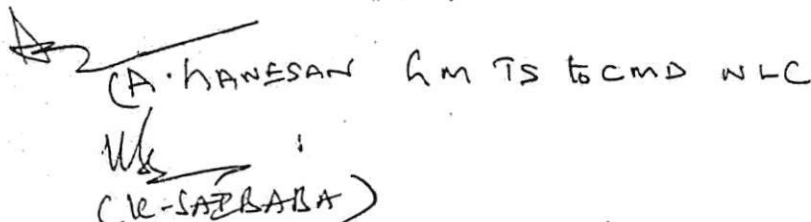 (A. GANESAN GM TS to CMD NLC
(K-SAIBABA)